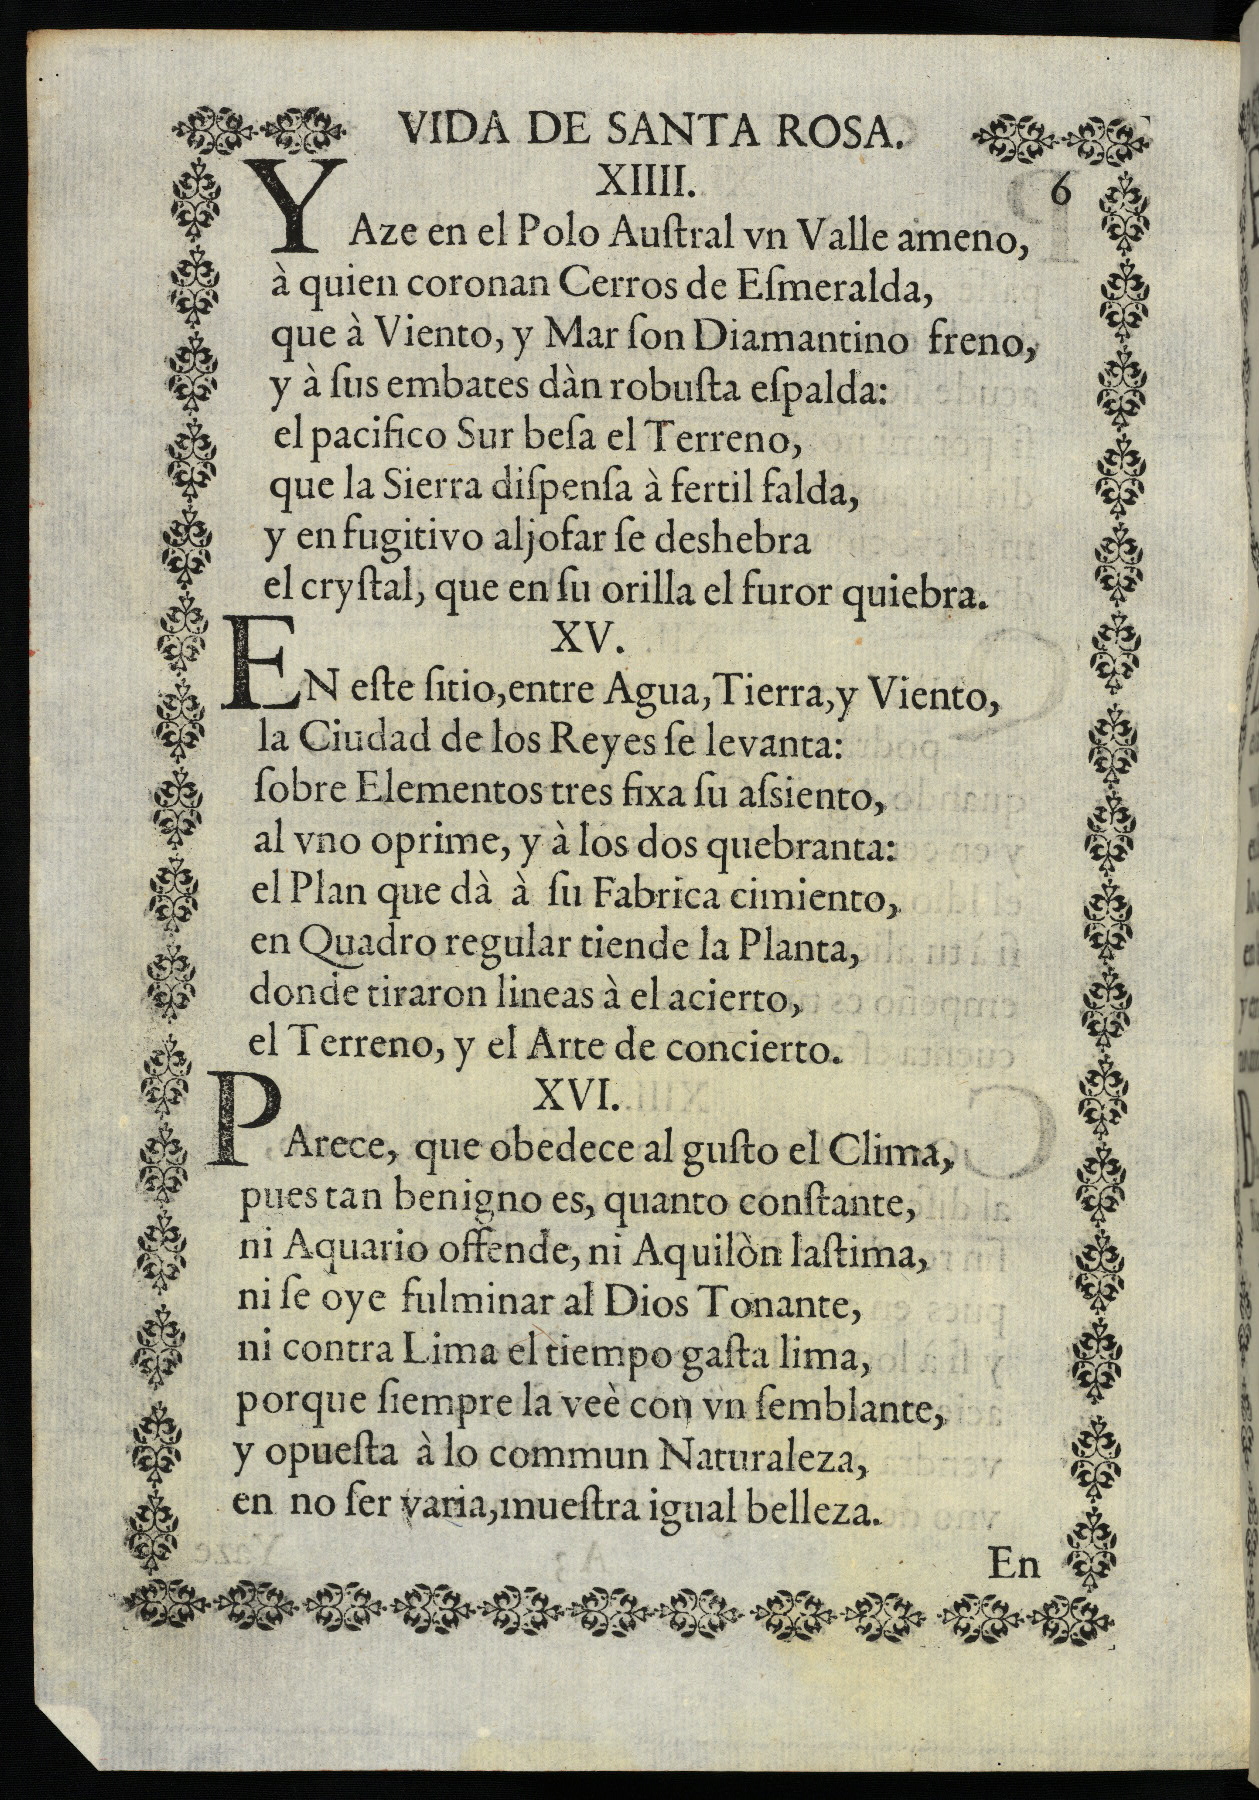 VIDA DE SANTA ROSA.
XIIII.
6
YAze en el Polo Auſtral vn Valle ameno,
à quien coronan Cerros de Eſmeralda,
que à Viento, y Mar ſon Diamantino freno,
y à ſus embates dàn robuſta eſpalda:
el pacifico Sur beſa el Terreno,
que la Sierra diſpenſa à fertil falda,
y en fugitivo aljofar ſe deshebra
el cryſtal, que en ſu orilla el furor quiebra.
XV.
EN eſte ſitio, entre Agua, Tierra, y Viento,
la Ciudad de los Reyes ſe levanta:
ſobre Elementos tres fixa ſu aſsiento,
al vno oprime, y à los dos quebranta:
el Plan que dà à ſu Fabrica cimiento,
en Quadro regular tiende la Planta,
donde tiraron lineas à el acierto,
el Terreno, y el Arte de concierto.
XVI.
PArece, que obedece al guſto el Clima,
pues tan benigno es, quanto conſtante,
ni Aquario offende, ni Aquilòn laſtima,
ni ſe oye fulminar al Dios Tonante,
ni contra Lima el tiempo gaſta lima,
porque ſiempre la veè con vn ſemblante,
y opueſta à lo commun Naturaleza,
en no ſer varia, mueſtra igual belleza.
En